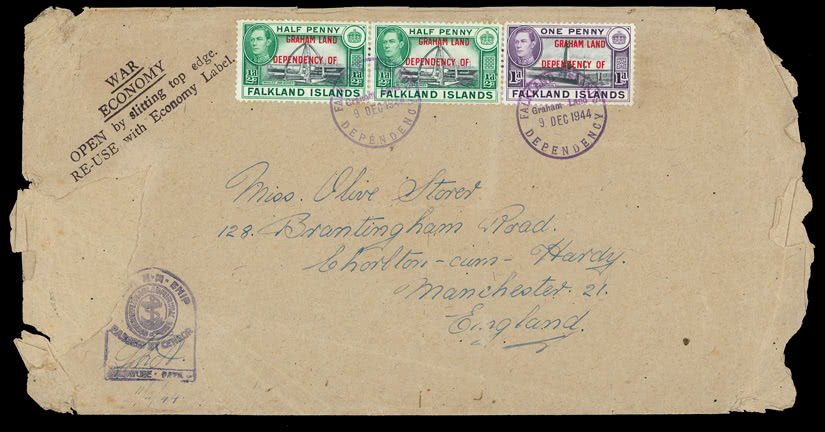 WAR
ECONOMY
OPEN by slitting top edge.
RE-USE with Economy Label.
HALF PENNY
GRAHAM LAND
DEPENDENCY OF
½d ½d
FALKLAND ISLANDS
HALF PENNY
GRAHAM LAND
DEPENDENCY OF
½d ½d
FALKLAND ISLANDS
ONE PENNY
GRAHAM LAND
DEPENDENCY OF
1d 1d
FALKLAND ISLANDS
Graham
9 DEC 1944
DEPENDENCY
Graham Land
9 DEC 1944
DEPENDENCY
Miss. Olive Storer
128. Brantingham Road.
Chorlton-cum-Hardy.
Manchester. 21.
England.
SHIP
PASSED BY CENSOR
DATE